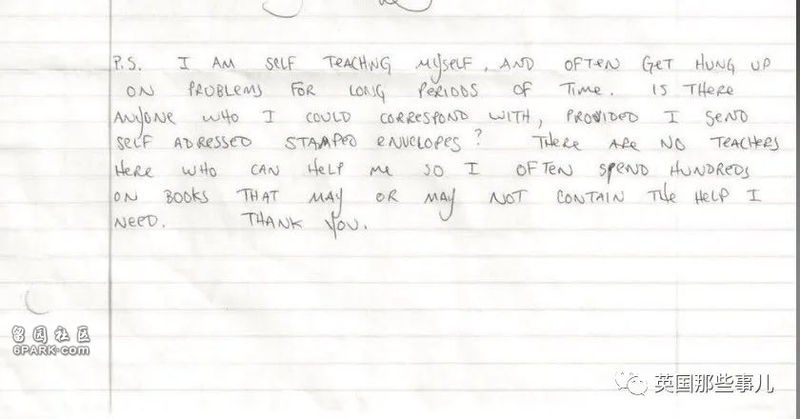 P.S. I AM SELF TEACHNG MYSELF, AND OFTEN GET HUNG UP
ON PROBLEMS FOR LONG PERIODS OF TIME. IS THERE
ANYONE WHO I COULD CORRESPOND WITH, PROVIDED I SEND
SELF ADRESSED STAMPED ENVELOPES? THERE ARE NO TEACHERS
HERE WHO CAN HELP ME SO I OFTEN SPEND HUNDREDS
ON BOOKS THAT MAY OR MAY NOT CONTAIN THE HELP I
NEED. THANK YOU.
留园社区
6PARK.com
英国那些事儿